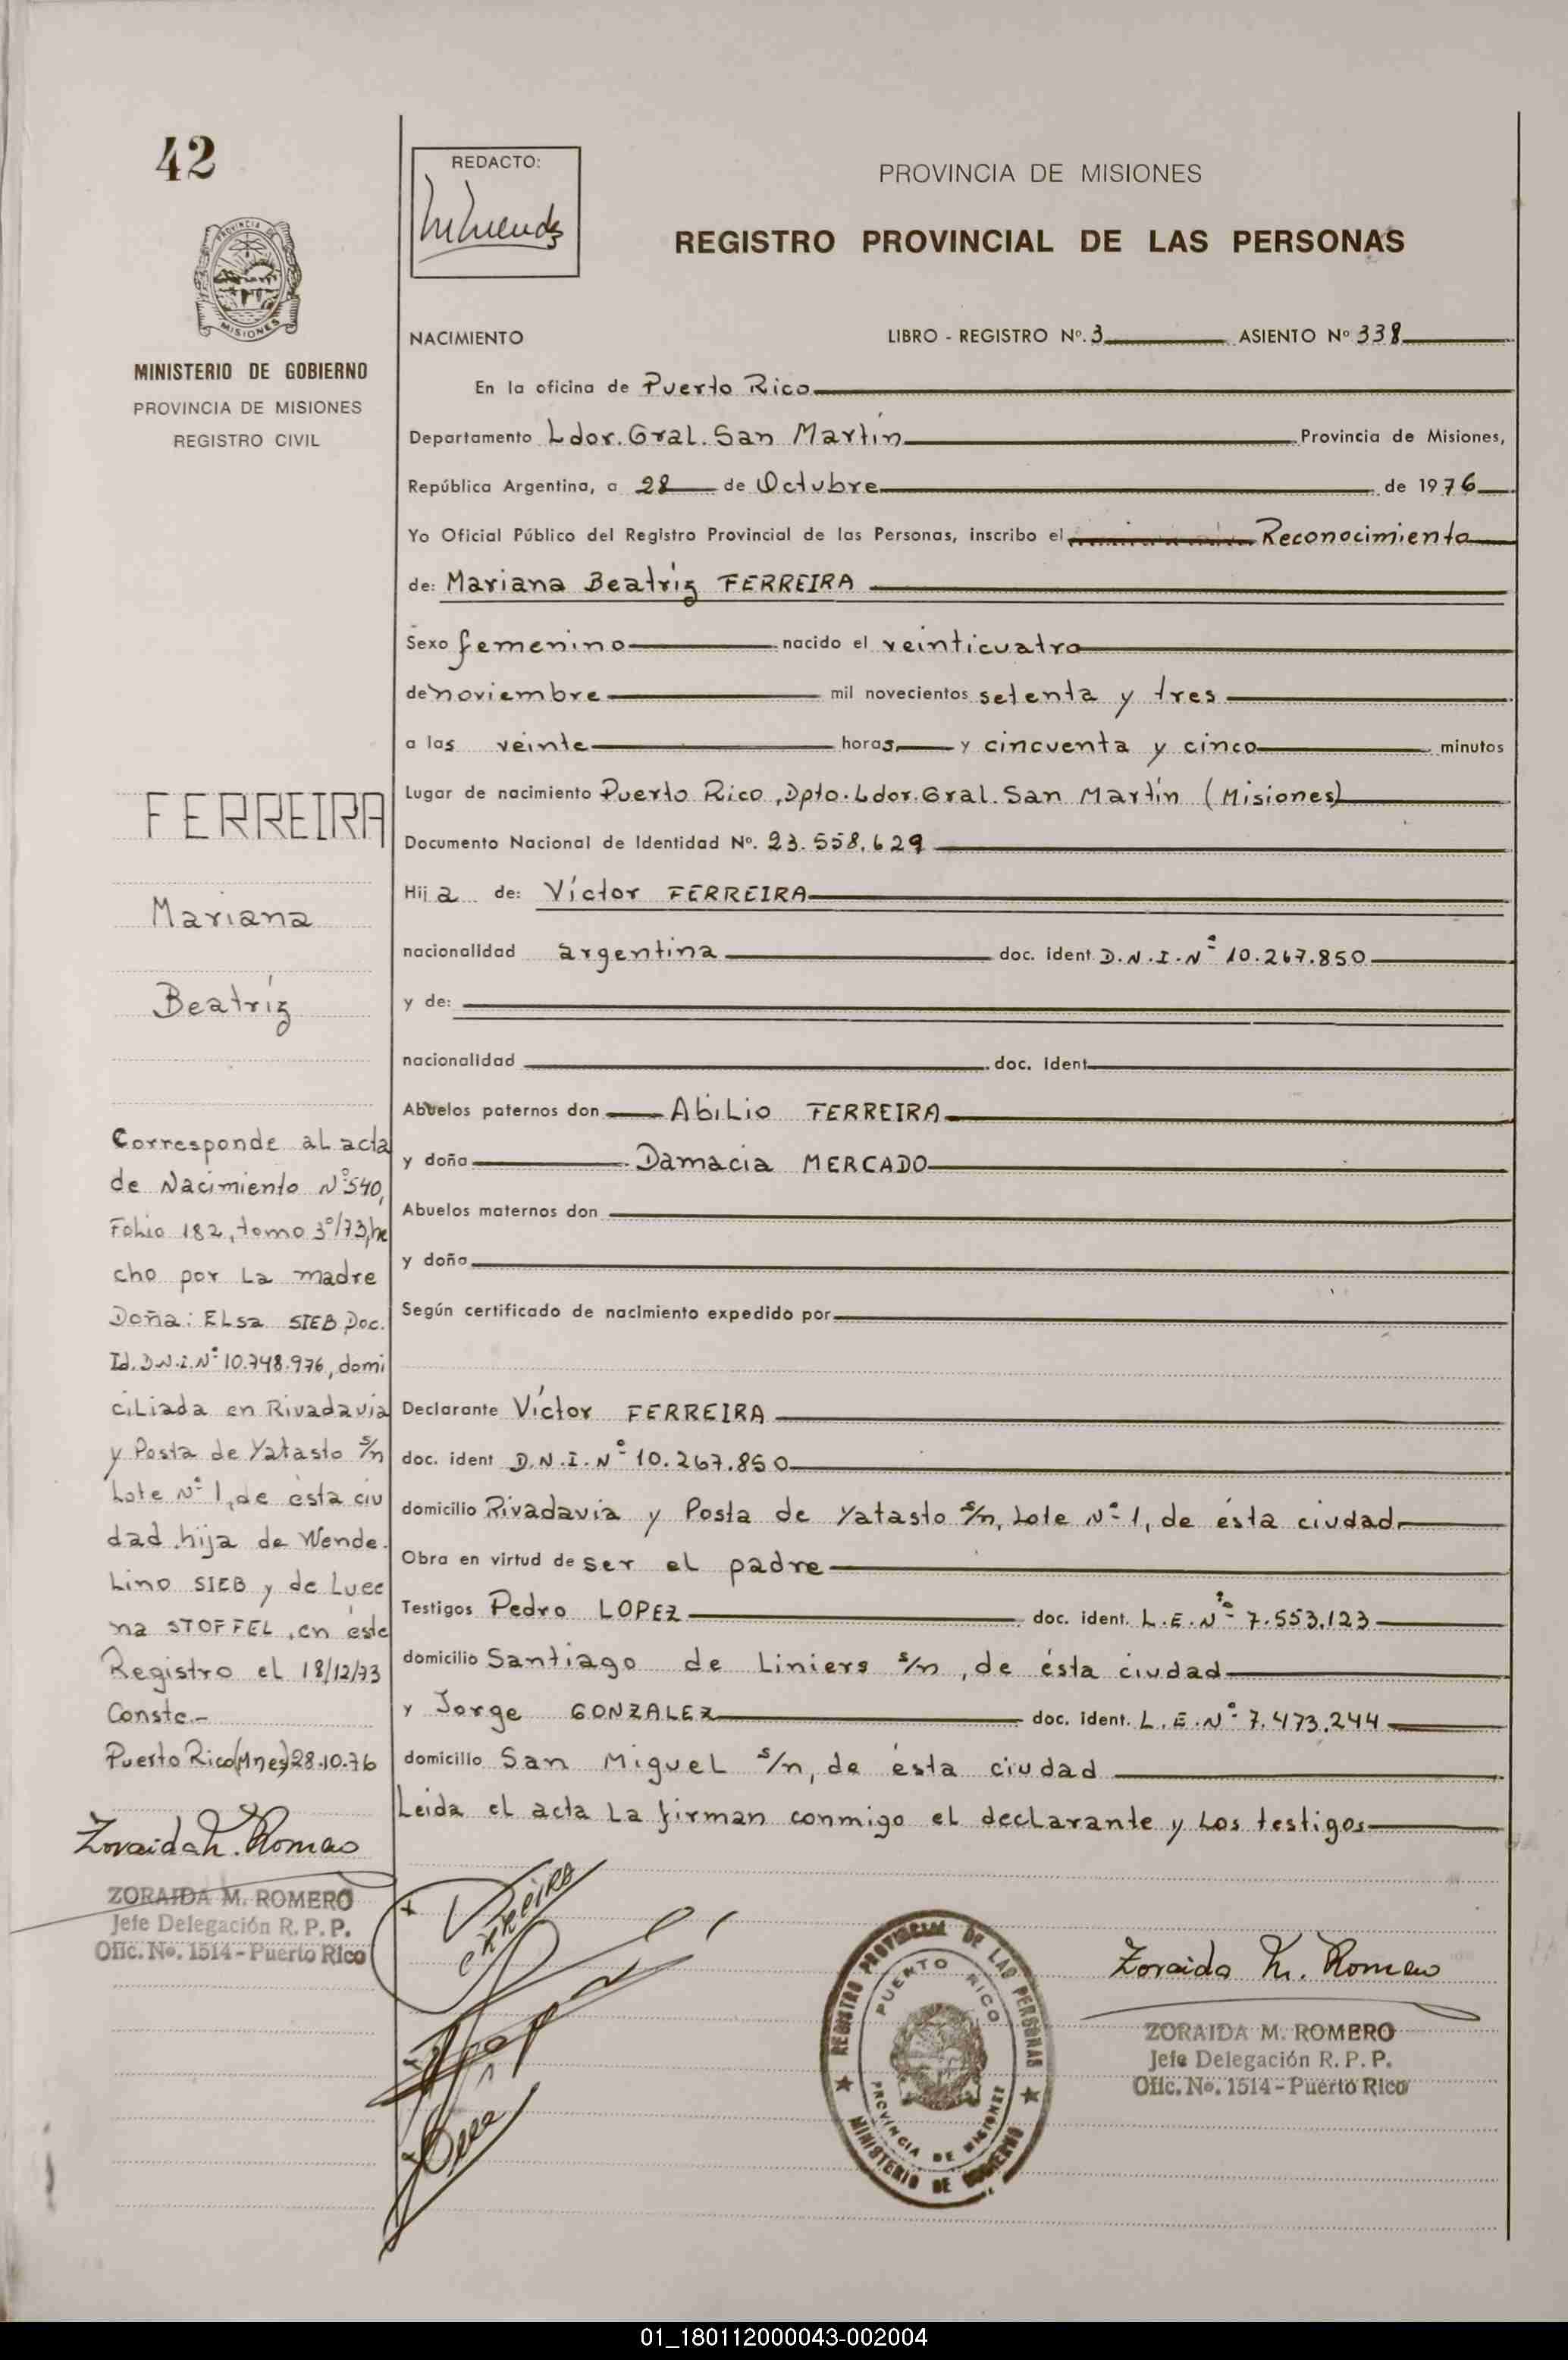 42
REDACTO:
PROVINCIA DE MISIONES
REGISTRO PROVINCIAL DE LAS PERSONAS
PROVINCIA DE
MISIONES
MINISTERIO DE GOBIERNO
PROVINCIA DE MISIONES
REGISTRO CIVIL
NACIMIENTO LIBRO - REGISTRO Nº. 3 ASIENTO Nº 338
En la oficina de Puerto Rico
Departamento Ldor. Gral. San Martín Provincia de Misiones,
República Argentina, a 28 de Octubre de 1976
Yo Oficial Público del Registro Provincial de las Personas, inscribo el Reconocimiento
de: Mariana Beatríz FERREIRA
Sexo femenino nacido el veinticuatro
de noviembre mil novecientos setenta y tres
a las veinte horas y cincuenta y cinco minutos
Lugar de nacimiento Puerto Rico, Dpto. Ldor. Gral. San Martín (Misiones)
Documento Nacional de Identidad Nº. 23.558.629
Hija de: Víctor FERREIRA
nacionalidad argentina doc. ident. D.N.I.Nº 10.267.850
y de:
nacionalidad doc. ident.
Abuelos paternos don Abilio FERREIRA
y doña Damacia MERCADO
Abuelos maternos don
y doña
Según certificado de nacimiento expedido por
Declarante Víctor FERREIRA
doc. ident D.N.I.Nº 10.267.850
domicilio Rivadavia y Posta de Yatasto s/n, Lote Nº 1, de ésta ciudad
Obra en virtud de ser el padre
Testigos Pedro LOPEZ doc. ident. L.E.Nº 7.553.123
domicilio Santiago de Liniers s/n, de ésta ciudad
y Jorge GONZALEZ doc. ident. L.E.Nº 7.473.244
domicilio San Miguel s/n, de ésta ciudad
Leida el acta la firman conmigo el declarante y los testigos
FERREIRA
Mariana
Beatríz
Corresponde al acta
de Nacimiento Nº 540,
Folio 182, tomo 3º/73, he
cho por la madre
Doña: Elsa SIEB Doc.
Id. D.N.I.Nº 10.748.976, domi
ciliada en Rivadavia
y Posta de Yatasto s/n
Lote Nº 1, de ésta ciu
dad hija de Wende-
lino SIEB y de Luce
na STOFFEL, en éste
Registro el 18/12/73
Conste.-
Puerto Rico (Mnes) 28.10.76
Zoraida M. Romero
ZORAIDA M. ROMERO
Jefe Delegación R. P. P.
Ofic. No. 1514 - Puerto Rico
Ferreira
REGISTRO PROVINCIAL DE LAS PERSONAS
PUERTO RICO
PROVINCIA DE MISIONES
MINISTERIO DE GOBIERNO
Zoraida M. Romero
ZORAIDA M. ROMERO
Jefe Delegación R. P. P.
Ofic. No. 1514 - Puerto Rico
01_180112000043-002004